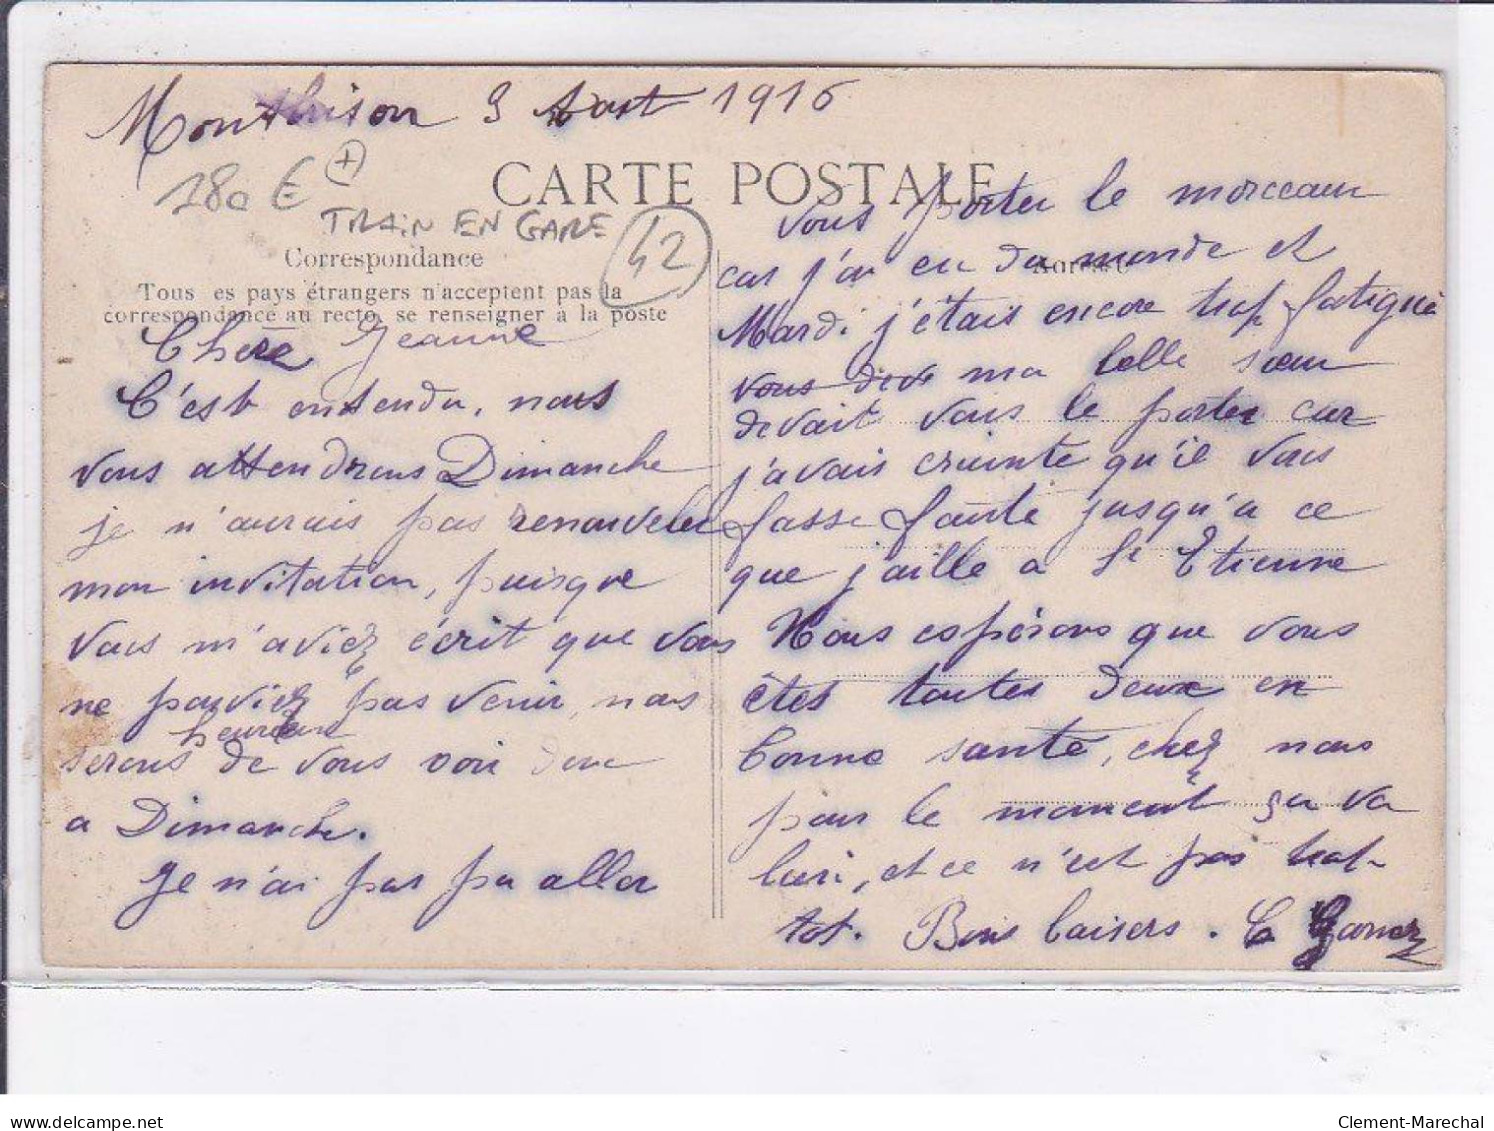 Montbrison 3 Aout 1916
180 € +
TRAIN EN GARE
42
CARTE POSTALE
Correspondance
Tous es pays étrangers n'acceptent pas la
correspondance au recto, se renseigner à la poste
Chère Jeanne
C'est entendu, nous
vous attendrons Dimanche
je n'aurais pas renouveler
mon invitation, puisque
vous m'aviez écrit que vous
ne pouviez pas venir, nous
heureux
serons de vous voir donc
a Dimanche.
Je n'ai pas pu aller
Adresse
vous porter le morceau
car j'ai eu du monde et
Mardi j'étais encore trop fatiguée
vous dire ma belle sœur
devait vous le porter car
j'avais crainte qu'il vous
fasse faute jusqu'a ce
que j'aille a St Etienne
Nous espérons que vous
êtes toutes deux en
bonne santé, chez nous
pour le moment ça va
bien, et ce n'est pas trop
tot. Bons baisers.
delcampe.net
Clement-Marechal